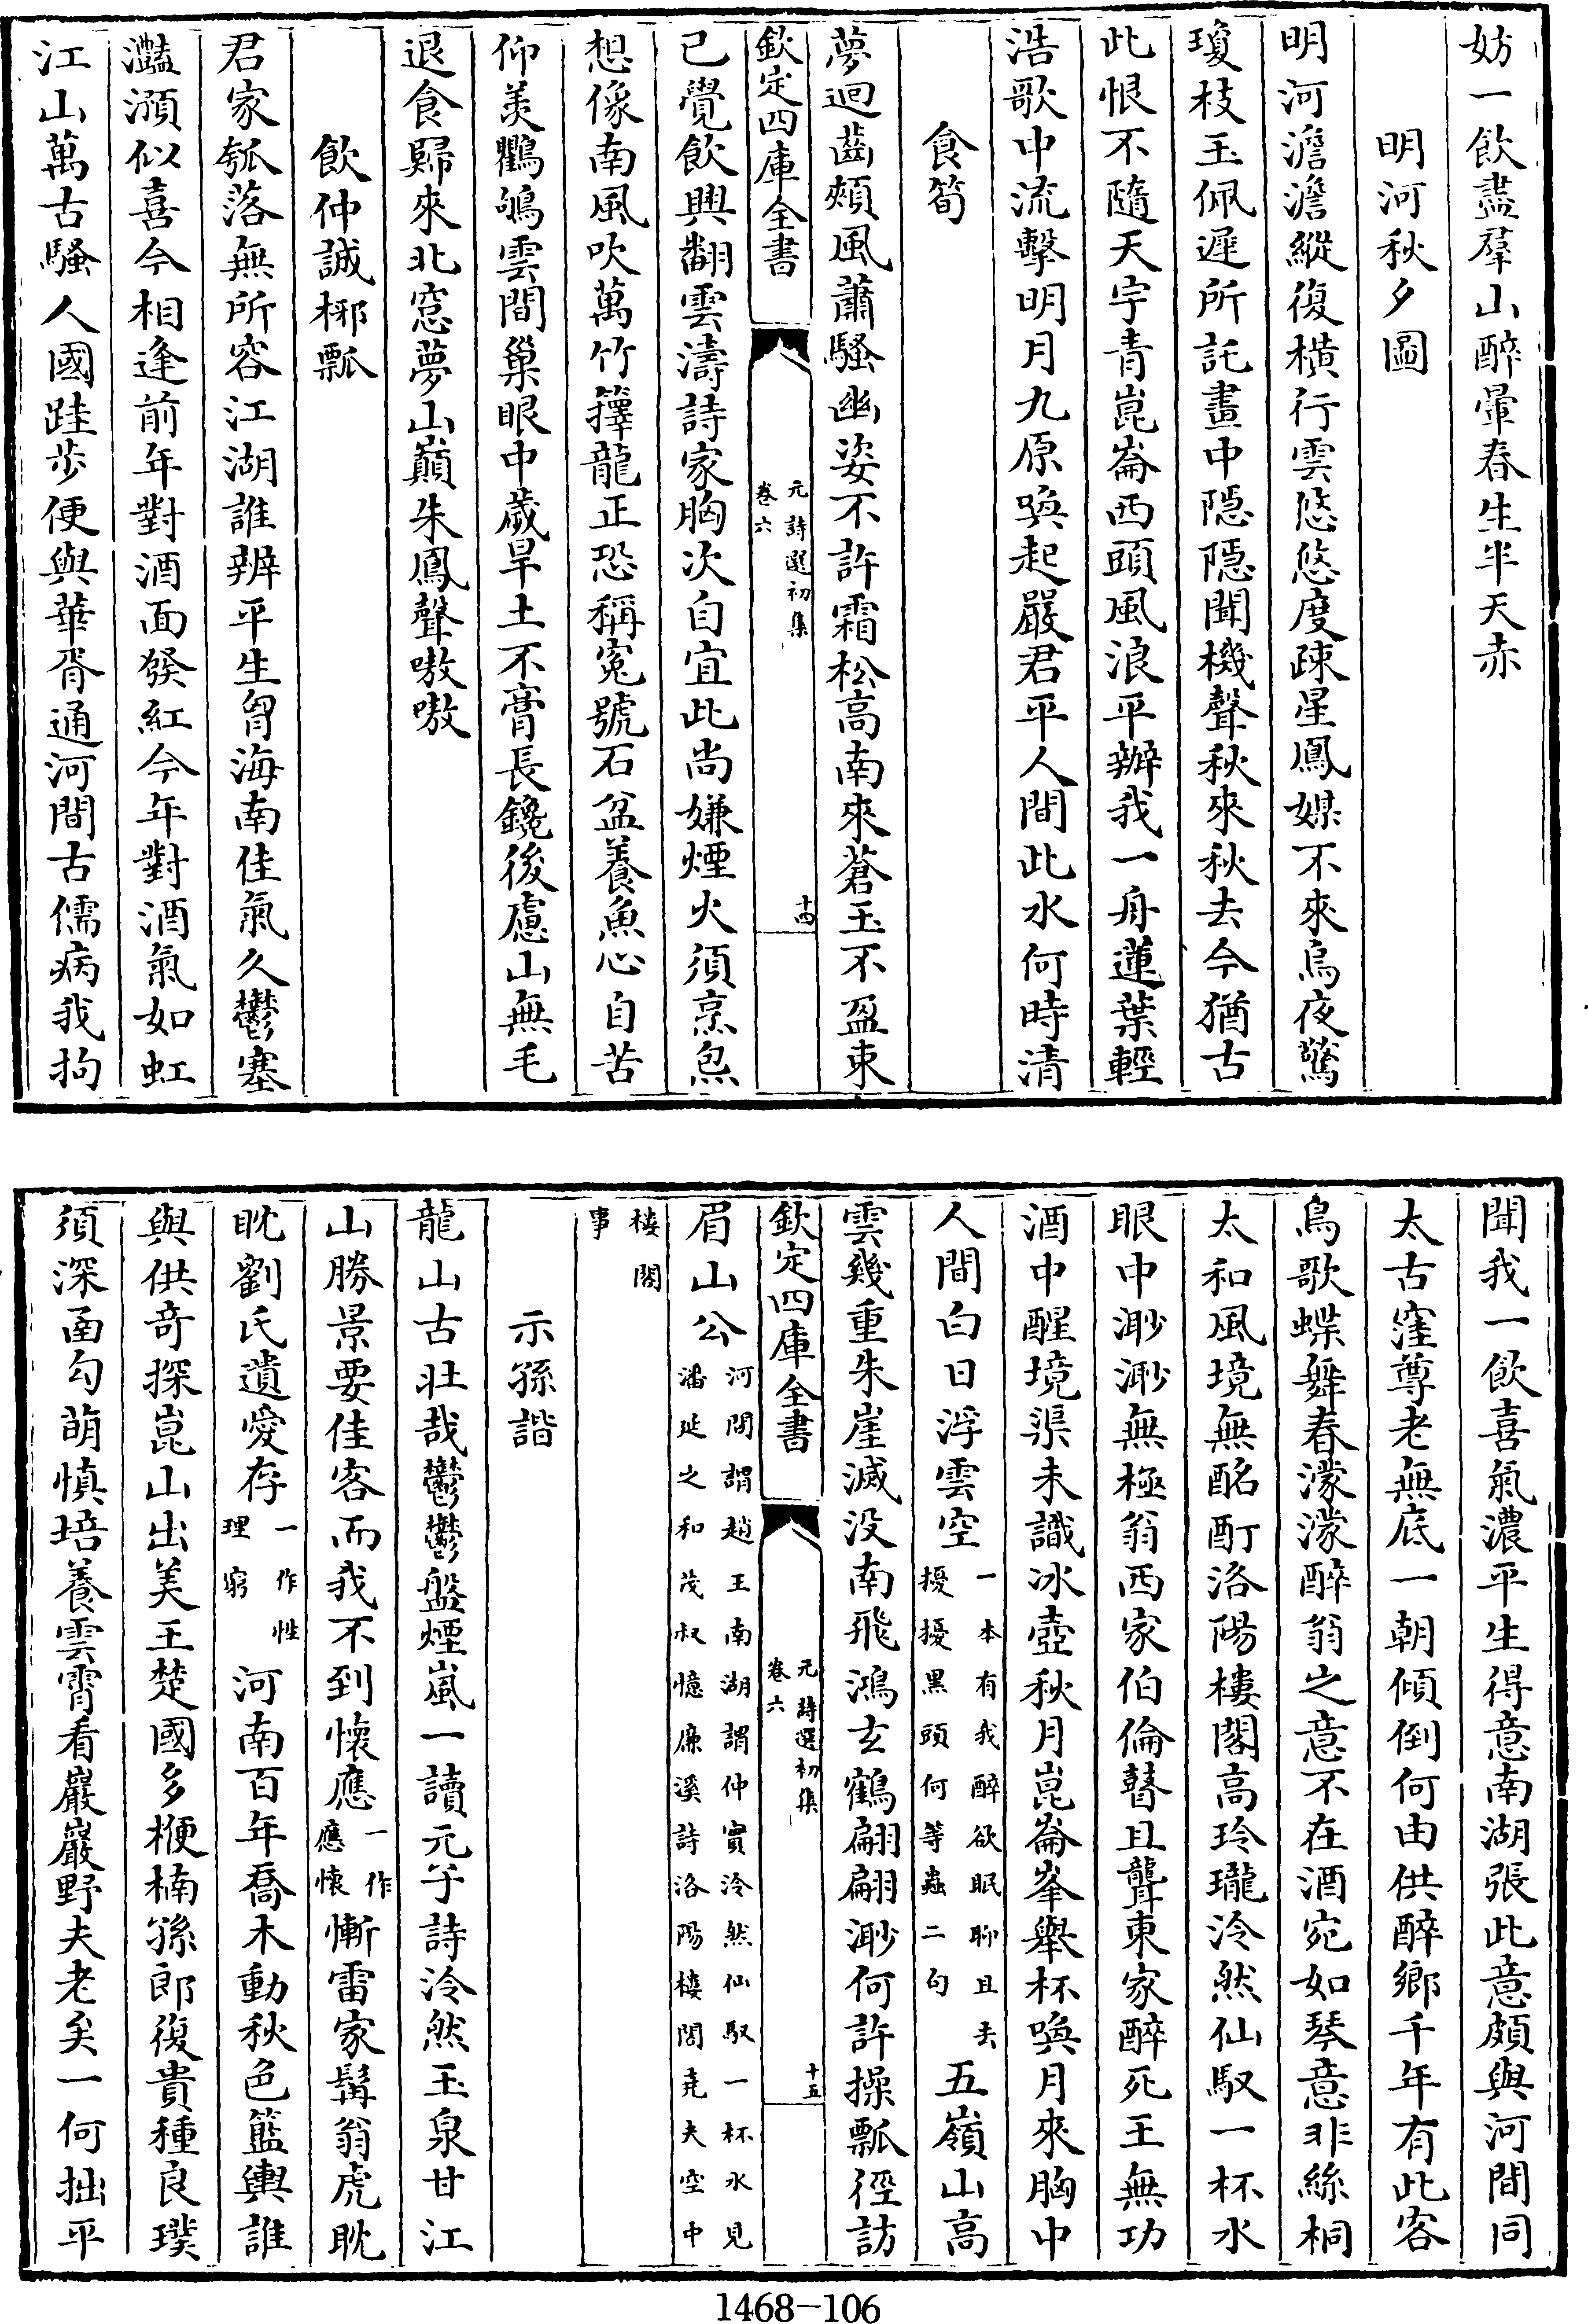 妨一飲盡羣山醉暈春生半天赤
明河秋夕圖
明河澹澹縱復橫行雲悠悠度疎星鳳媒不來烏夜驚
瓊枝玉佩遲所託畫中隱隱聞機聲秋來秋去今猶古
此恨不隨天宇青崑崙西頭風浪平辦我一舟蓮葉輕
浩歌中流擊明月九原喚起嚴君平人間此水何時清
食筍
夢迴齒頰風蕭騷幽姿不許霜松高南來蒼玉不盈束
欽定四庫全書
元詩選初集
卷六
十四
已覺飲興翻雲濤詩家胸次自宜此尚嫌煙火須烹炰
想像南風吹萬竹籜龍正恐稱寃號石盆養魚心自苦
仰羨鸛鵃雲間巢眼中歲旱土不膏長鑱後慮山無毛
退食歸來北窓夢山巔朱鳳聲嗷嗷
飲仲誠椰瓢
君家瓠落無所容江湖誰辨平生胷海南佳氣久鬱塞
灩澦似喜今相逢前年對酒面發紅今年對酒氣如虹
江山萬古騷人國跬步便與華胥通河間古儒病我拘
聞我一飲喜氣濃平生得意南湖張此意頗與河間同
太古窪尊老無底一朝傾倒何由供醉鄉千年有此客
鳥歌蝶舞春濛濛醉翁之意不在酒宛如琴意非絲桐
太和風境無酩酊洛陽樓閣高玲瓏泠然仙馭一杯水
眼中渺渺無極翁西家伯倫瞽且聾東家醉死王無功
酒中醒境渠未識冰壺秋月崑崙峯舉杯喚月來胸中
人間白日浮雲空
一本有我醉欲眠聊且去
擾擾黑頭何等蟲二句
五嶺山高
雲幾重朱崖滅没南飛鴻玄鶴翩翩渺何許操瓢徑訪
欽定四庫全書
元詩選初集
卷六
十五
眉山公
河間謂趙王南湖謂仲實泠然仙馭一杯水見
潘延之和茂叔憶廉溪詩洛陽樓閣堯夫空中
樓閣
事
示孫諧
龍山古壯哉鬱鬱盤煙嵐一讀元子詩泠然玉泉甘江
山勝景要佳客而我不到懷應
一作
應懷
慚雷家髯翁虎眈
眈劉氏遺愛存
一作性
理窮
河南百年喬木動秋色籃輿誰
與供奇探崑山出美玉楚國多楩楠孫郎復貴種良璞
須深函勾萌慎培養雲霄看巖巖野夫老矣一何拙平
1468—106